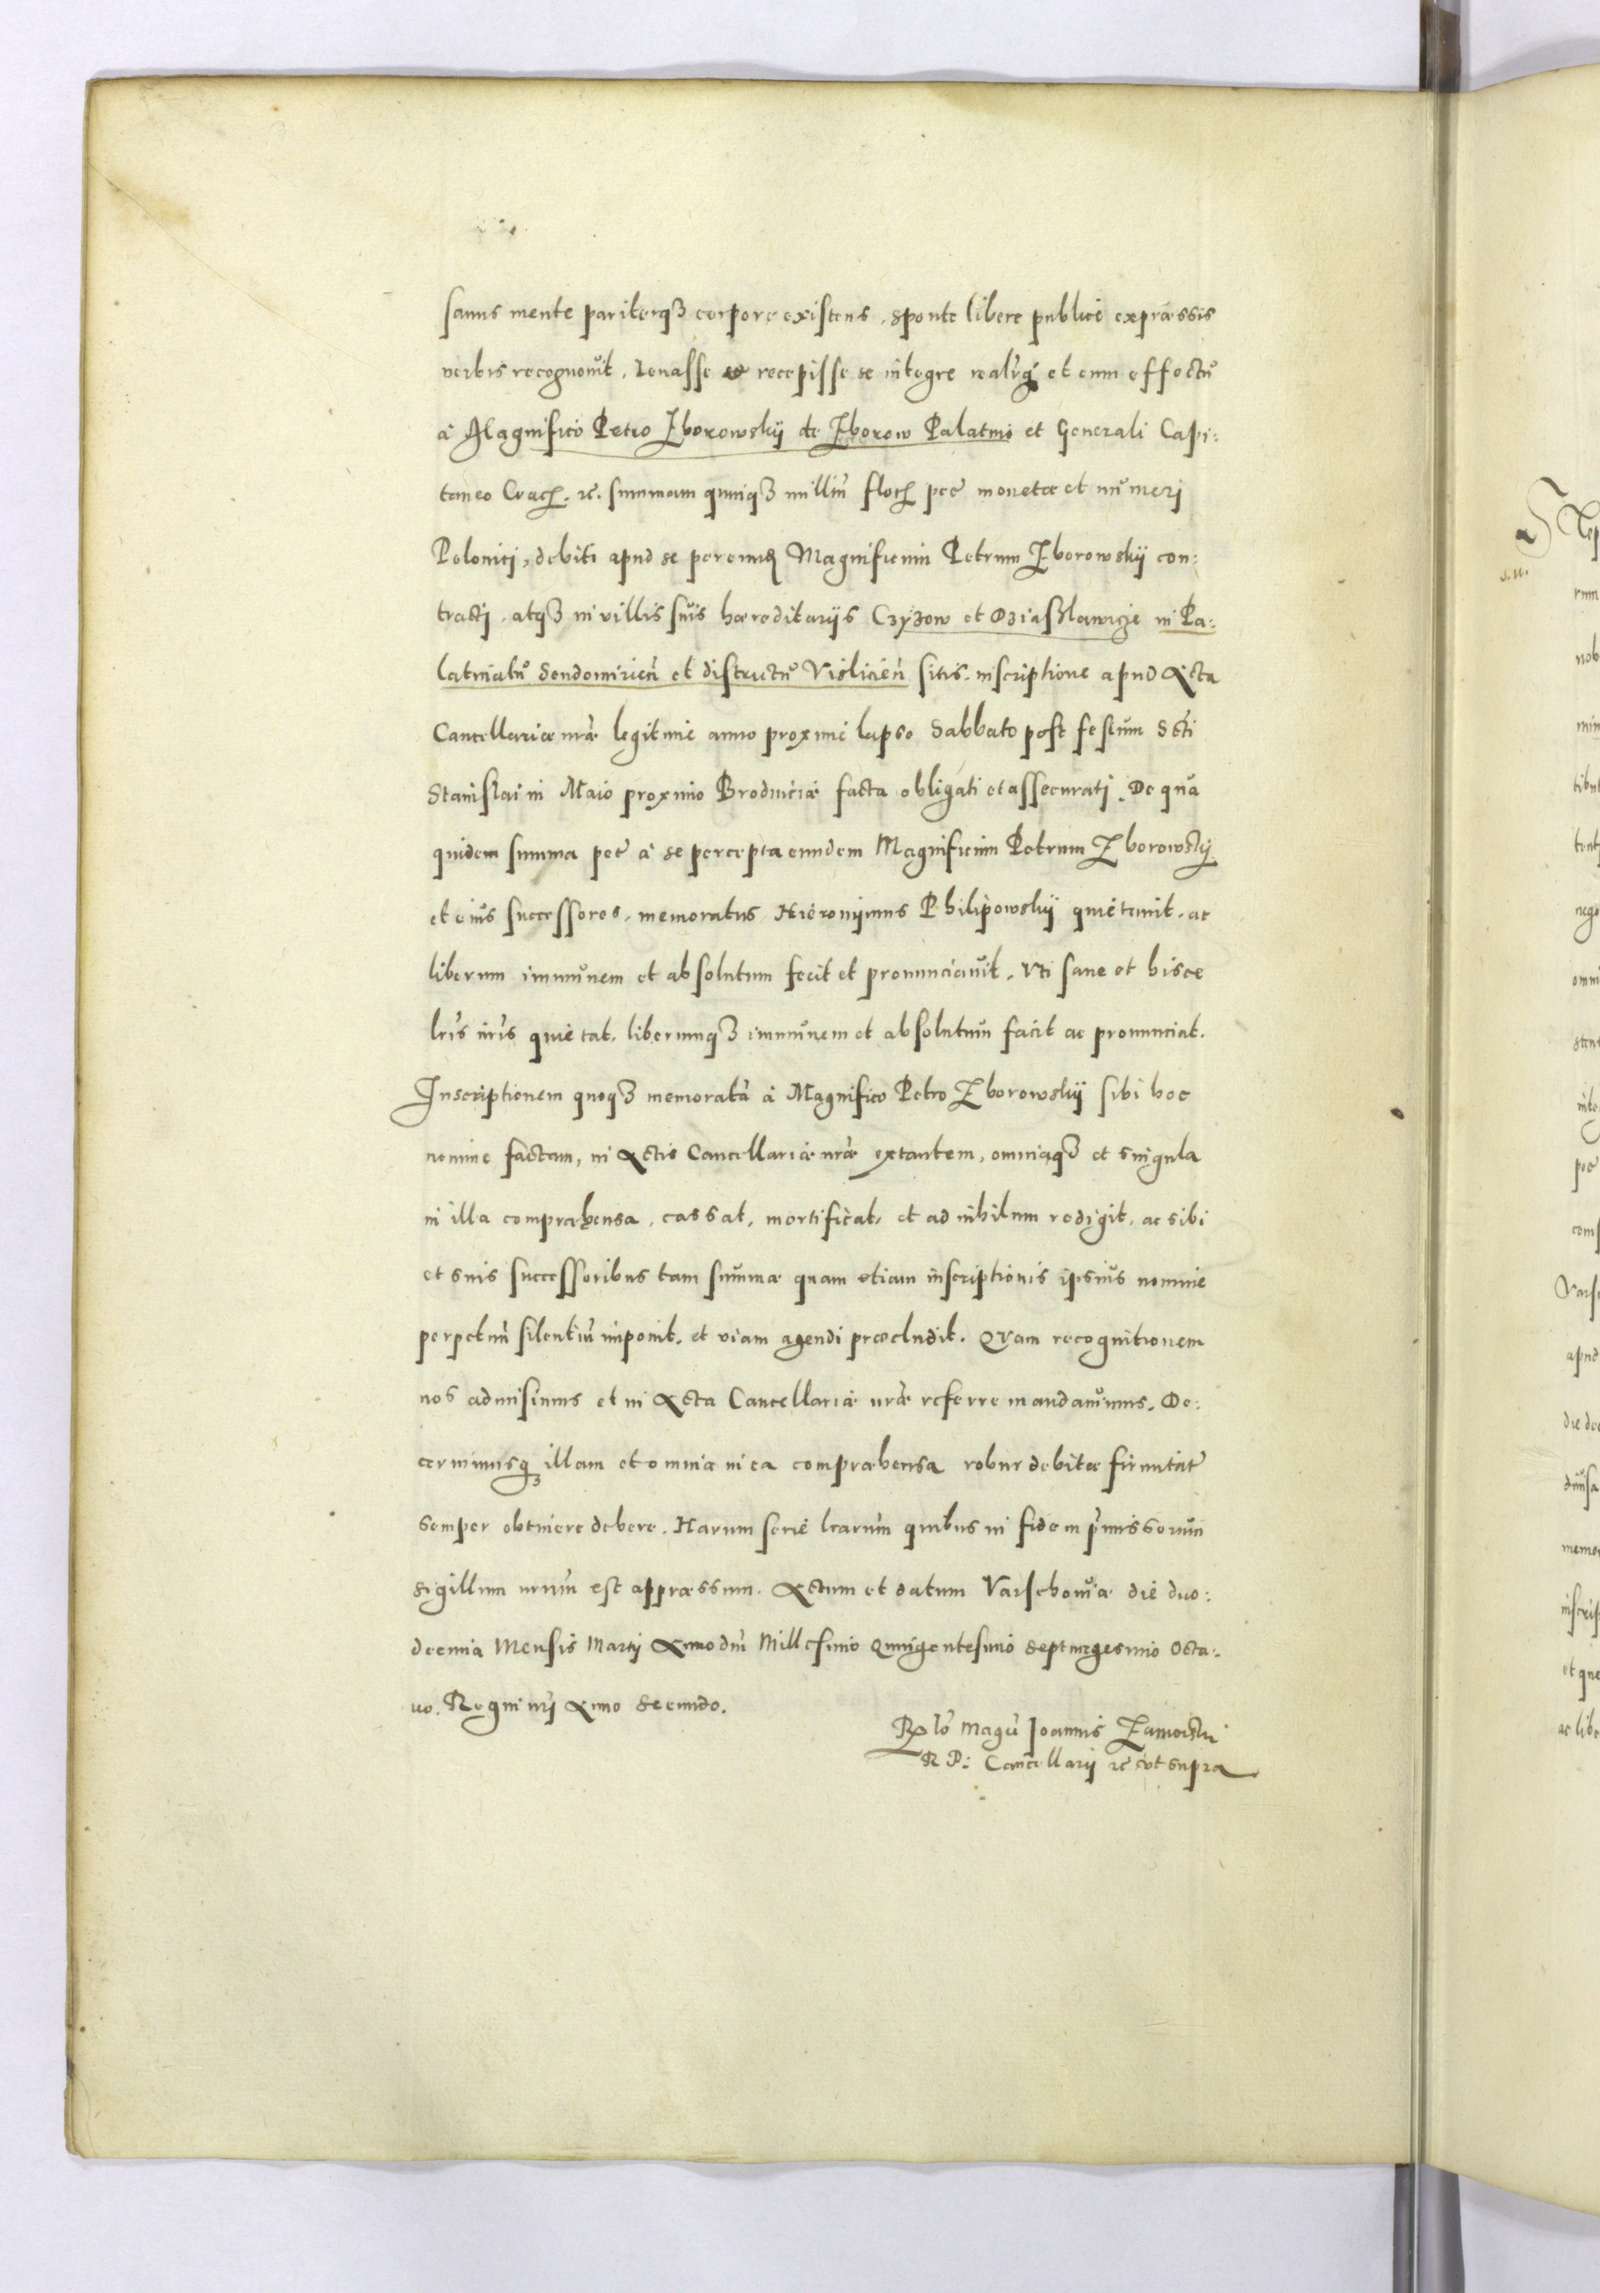 sanus mente pariterqȝ corpore existens, sponte libere publice expræssis
verbis recognovit, levasse et recepisse se integre realr̃qȝ et cum effectu
à Magnifico Petro Zborowskij de Zborow Palatino et Generali Capi:
taneo Crac. rc. summam quinqȝ milliũ flor. pec̃ monetæ et numeri
Polonici, debiti apud se per eund Magnificum Petrum Zborowskij con:
tracti, atqȝ in villis suis hæreditarijs Czyzow et Dziaslawicze in Pa:
latinatu Sendomirien̄ et districtu Vislicien̄ sitis, inscriptione apud Acta
Cancellariæ nr̃æ legitime anno proxime lapso Sabbato post festum Sc̃ti
Stanislai in Maio proximo Brodniciæ facta obligati et assecurati. De qua
quidem summa pec̃ à se percepta eundem Magnificum Petrum Zborowskij
et eius successores, memoratus Hieronijmus Philipowskij quietavit, ac
liberum immunem et absolutum fecit et pronunciavit. Uti sane et hisce
lr̃is nr̃is quietat, liberumqȝ immunem et absolutum facit ac pronunciat.
Inscriptionem quoqȝ memoratã à Magnifico Petro Zborowskij sibi hoc
nomine factam, in Actis Cancellariæ nr̃æ extantem, omniaqȝ et singula
in illa compræhensa, cassat, mortificat, et ad nihilum redigit, ac sibi
et suis successoribus tam summæ quam etiam inscriptionis ipsius nomine
perpetuũ silentiũ imponit, et viam agendi præcludit. Quam recognitionem
nos admisimus et in Acta Cancellariæ nr̃æ referre mandavimus. De:
cernimusqȝ illam et omnia in ea compræhensa robur debitæ firmitat̃
semper obtinere debere. Harum serie lr̃arum quibus in fidem p̃missorum
sigillum nr̃um est appræssum. Actum et datum Varschoviæ die duo:
decima Mensis Martij Anno dñi Millesimo Quingentesimo Septuagesimo Octa:
vo. Regni nr̃i Anno Secundo.
Rl̃o Magci Joannis Zamoiski
R P: Cancellarij rc ut supra